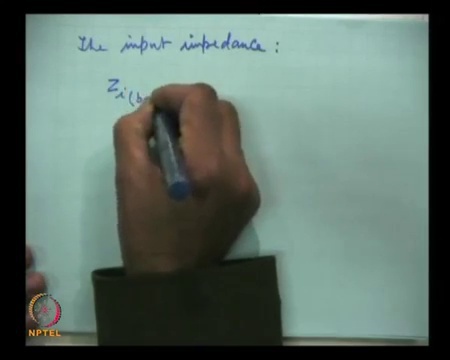 The input impedance :
Z i(b
NPTEL